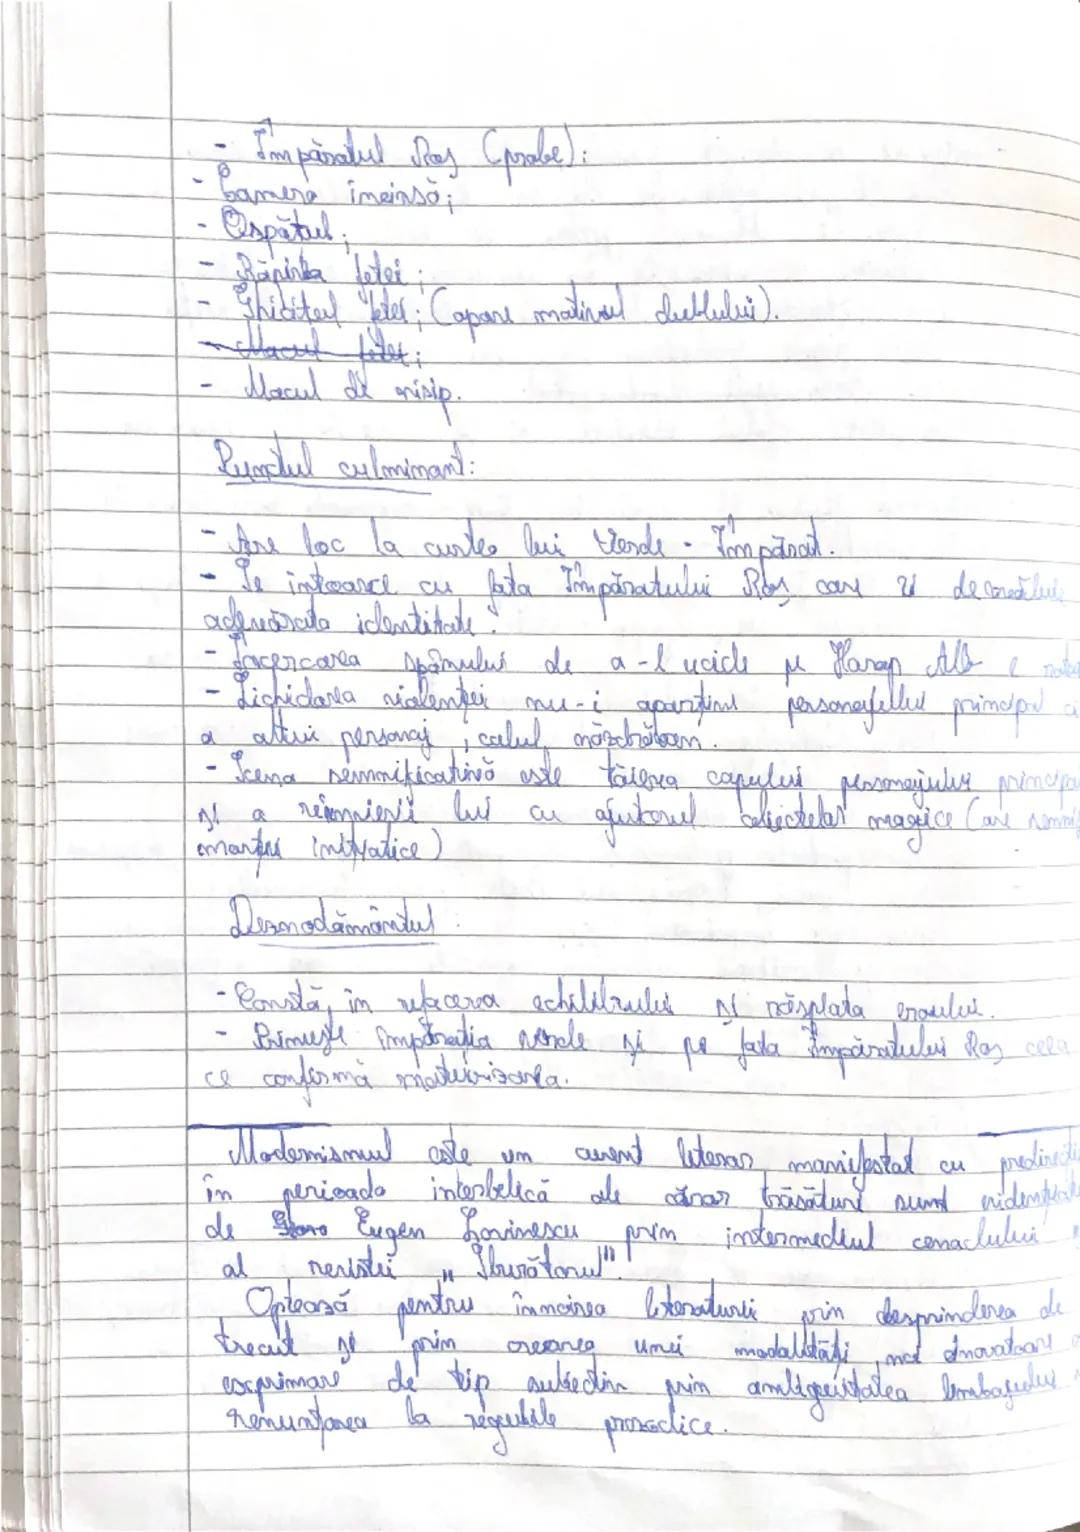 - Împăratul Roș (probe):
- Camera încinsă;
- Ospătul;
- Răpirea fetei;
- Ghicitul fetei; (apare motivul dublului).
- Macul fetei;
- Macul de nisip.
Punctul culminant:
- Are loc la curtea lui Verde - Împărat.
- Se întoarce cu fata Împăratului Roș care îi
adevărata identitate.
- Încercarea spânului de a-l ucide pe Harap Alb e
- Lichidarea violenței nu-i aparține personajului principal ci
a altui personaj, calul năzdrăvan.
- Scena semnificativă este tăierea capului personajului principal
și a reînvierii lui cu ajutorul obiectelor magice (are
morții inițiatice)
Deznodământul:
- Constă, în refacerea echilibrului și răsplata eroului.
- Primește împărăția verde și pe fata Împăratului Roș ceea
ce confirmă maturizarea.
Modernismul este un curent literar, manifestat cu
în perioada interbelică ale cărar trăsături sunt
de Eugen Lovinescu prim intermediul cenaclului
al revistei "Sburătorul".
Optează pentru înnoirea literaturii prin desprinderea de
trecut și prim crearea unei modalități noi inovatoare
exprimare de tip subiectiv prin ambiguitatea limbajului
renunțarea la regulile prozodice.